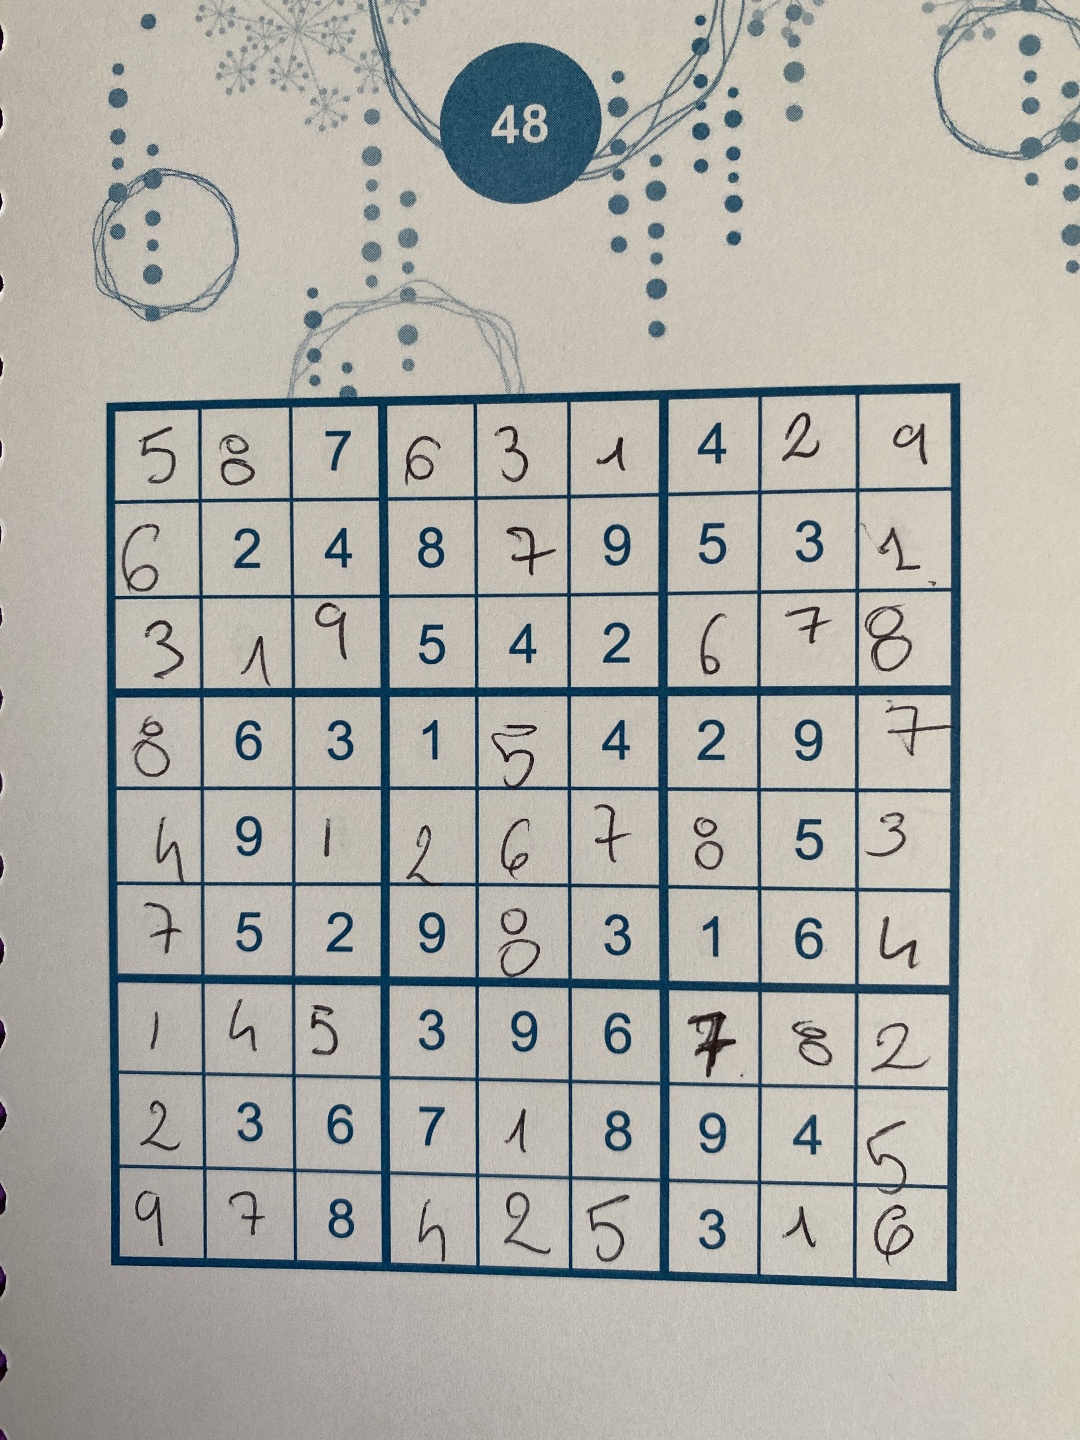 48
5 8 7 6 3 1 4 2 9
6 2 4 8 7 9 5 3 1
3 1 9 5 4 2 6 7 8
8 6 3 1 5 4 2 9 7
4 9 1 2 6 7 8 5 3
7 5 2 9 8 3 1 6 4
1 4 5 3 9 6 7 8 2
2 3 6 7 1 8 9 4 5
9 7 8 4 2 5 3 1 6